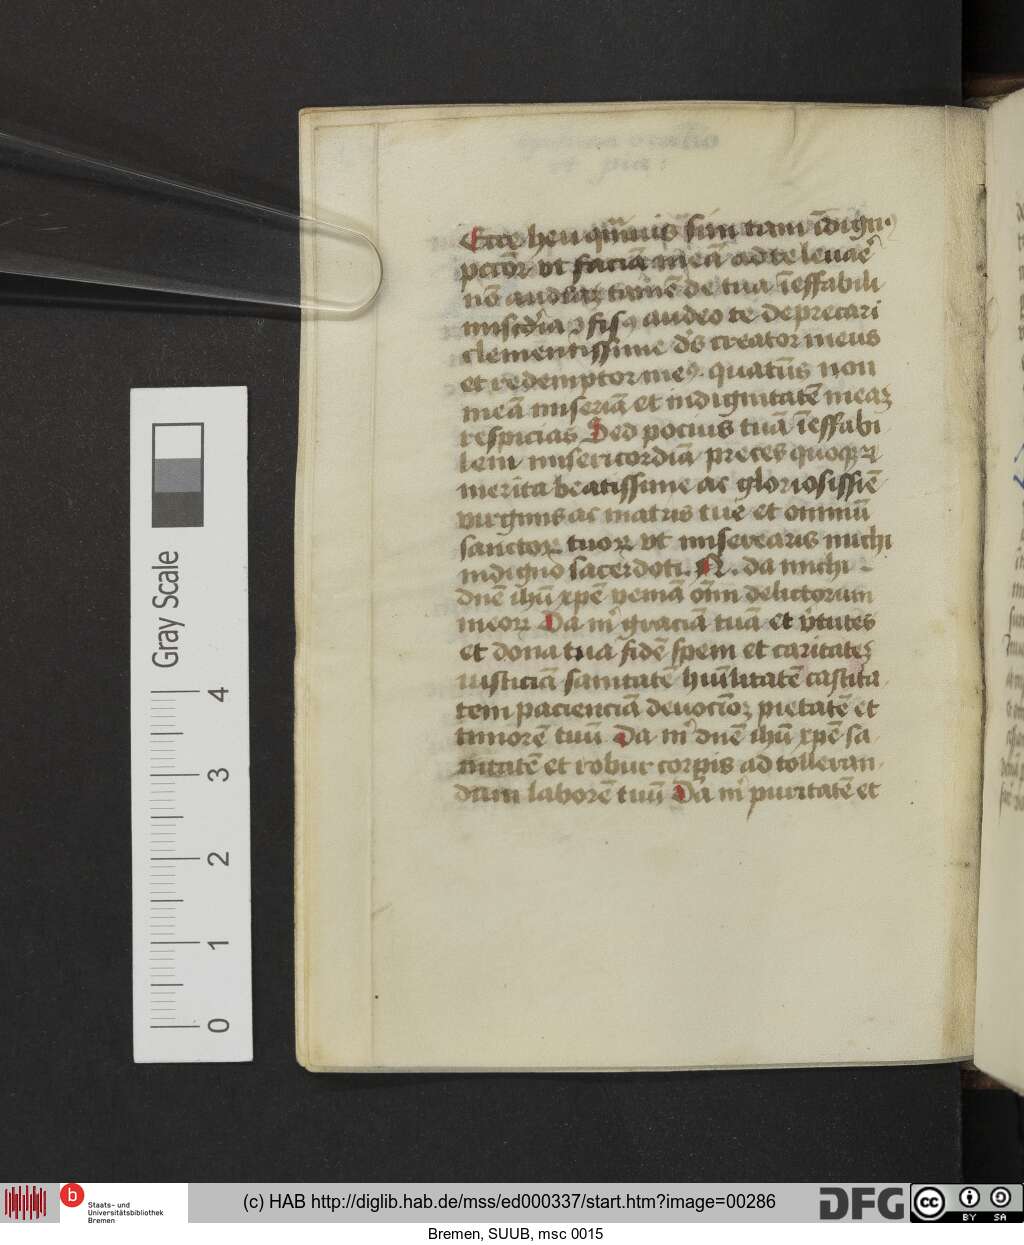 Ecce heu qͣmuis sim tam ĩdign⁹
pctõr vt faciã meã ad te leuaẽ
nõ audeaꝫ tamẽ de tua ĩeffabili
misc̃dia ↄfisꝰ audeo te deprecari
clementissime dẽs creator meus
et redemptor meꝰ. quatũs non
meã miseriã et indignitatẽ meaꝫ
respicias Sed pocius tuã ĩeffabi
lem misericordiã preces quoqꝫ ꝛ
merita beatissime ac gloriosissiẽ
virginis ac matris tue et omniũ
sanctoꝝ tuoꝝ vt miserearis michi
indigno sacerdoti. N. da michi
dnẽ ihũ xpẽ veniã om̃ delictorum
meoꝝ Da mͥ graciã tuã et v̾tutes
et dona tua fidẽ spem et caritateꝫ
iusticiã sanitatẽ hũilitatẽ castita
tem pacienciã deuocõeꝫ pietatẽ et
timorẽ tuũ Da mͥ dnẽ ihũ xpẽ sa
nitatẽ et robur corpis ad tolleran
dum laborẽ tuũ Da mͥ puritatẽ et
Gray Scale
4
3
2
1
0
b Staats- und
Universitätsbibliothek
Bremen
(c) HAB http://diglib.hab.de/mss/ed000337/start.htm?image=00286
DFG
cc BY SA
Bremen, SUUB, msc 0015